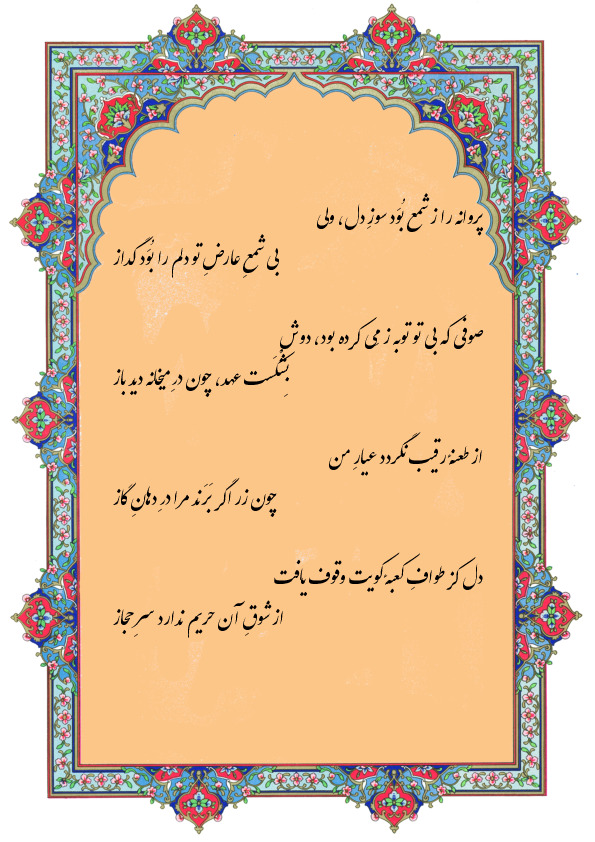 پروانه را ز شمع بُوَد سوزِ دل، ولی
بی شمعِ عارضِ تو دلم را بُوَد گداز
صوفی که بی تو توبه ز می کرده بود، دوش
بِشْکَست عهد، چون درِ میخانه دید باز
از طعنهٔ رقیب نگردد عیارِ من
چون زر اگر بَرَند مرا در دهانِ گاز
دل کز طوافِ کعبهٔ کویت وقوف یافت
از شوقِ آن حریم ندارد سرِ حجاز